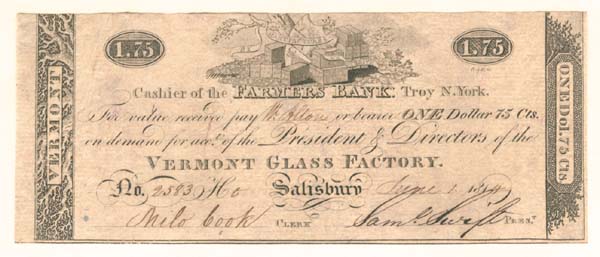 1.75 1.75
VERMONT
Cashier of the FARMERS BANK: Troy N.York.
For value received pay or bearer ONE Dollar 75 Cts.
on demand for acct. of the President & Directors of the
VERMONT GLASS FACTORY.
No. 2583 Salisbury June 1, 1814
Milo Cook CLERK Saml. Swift PREST.
ONE Dol. 75 Cts